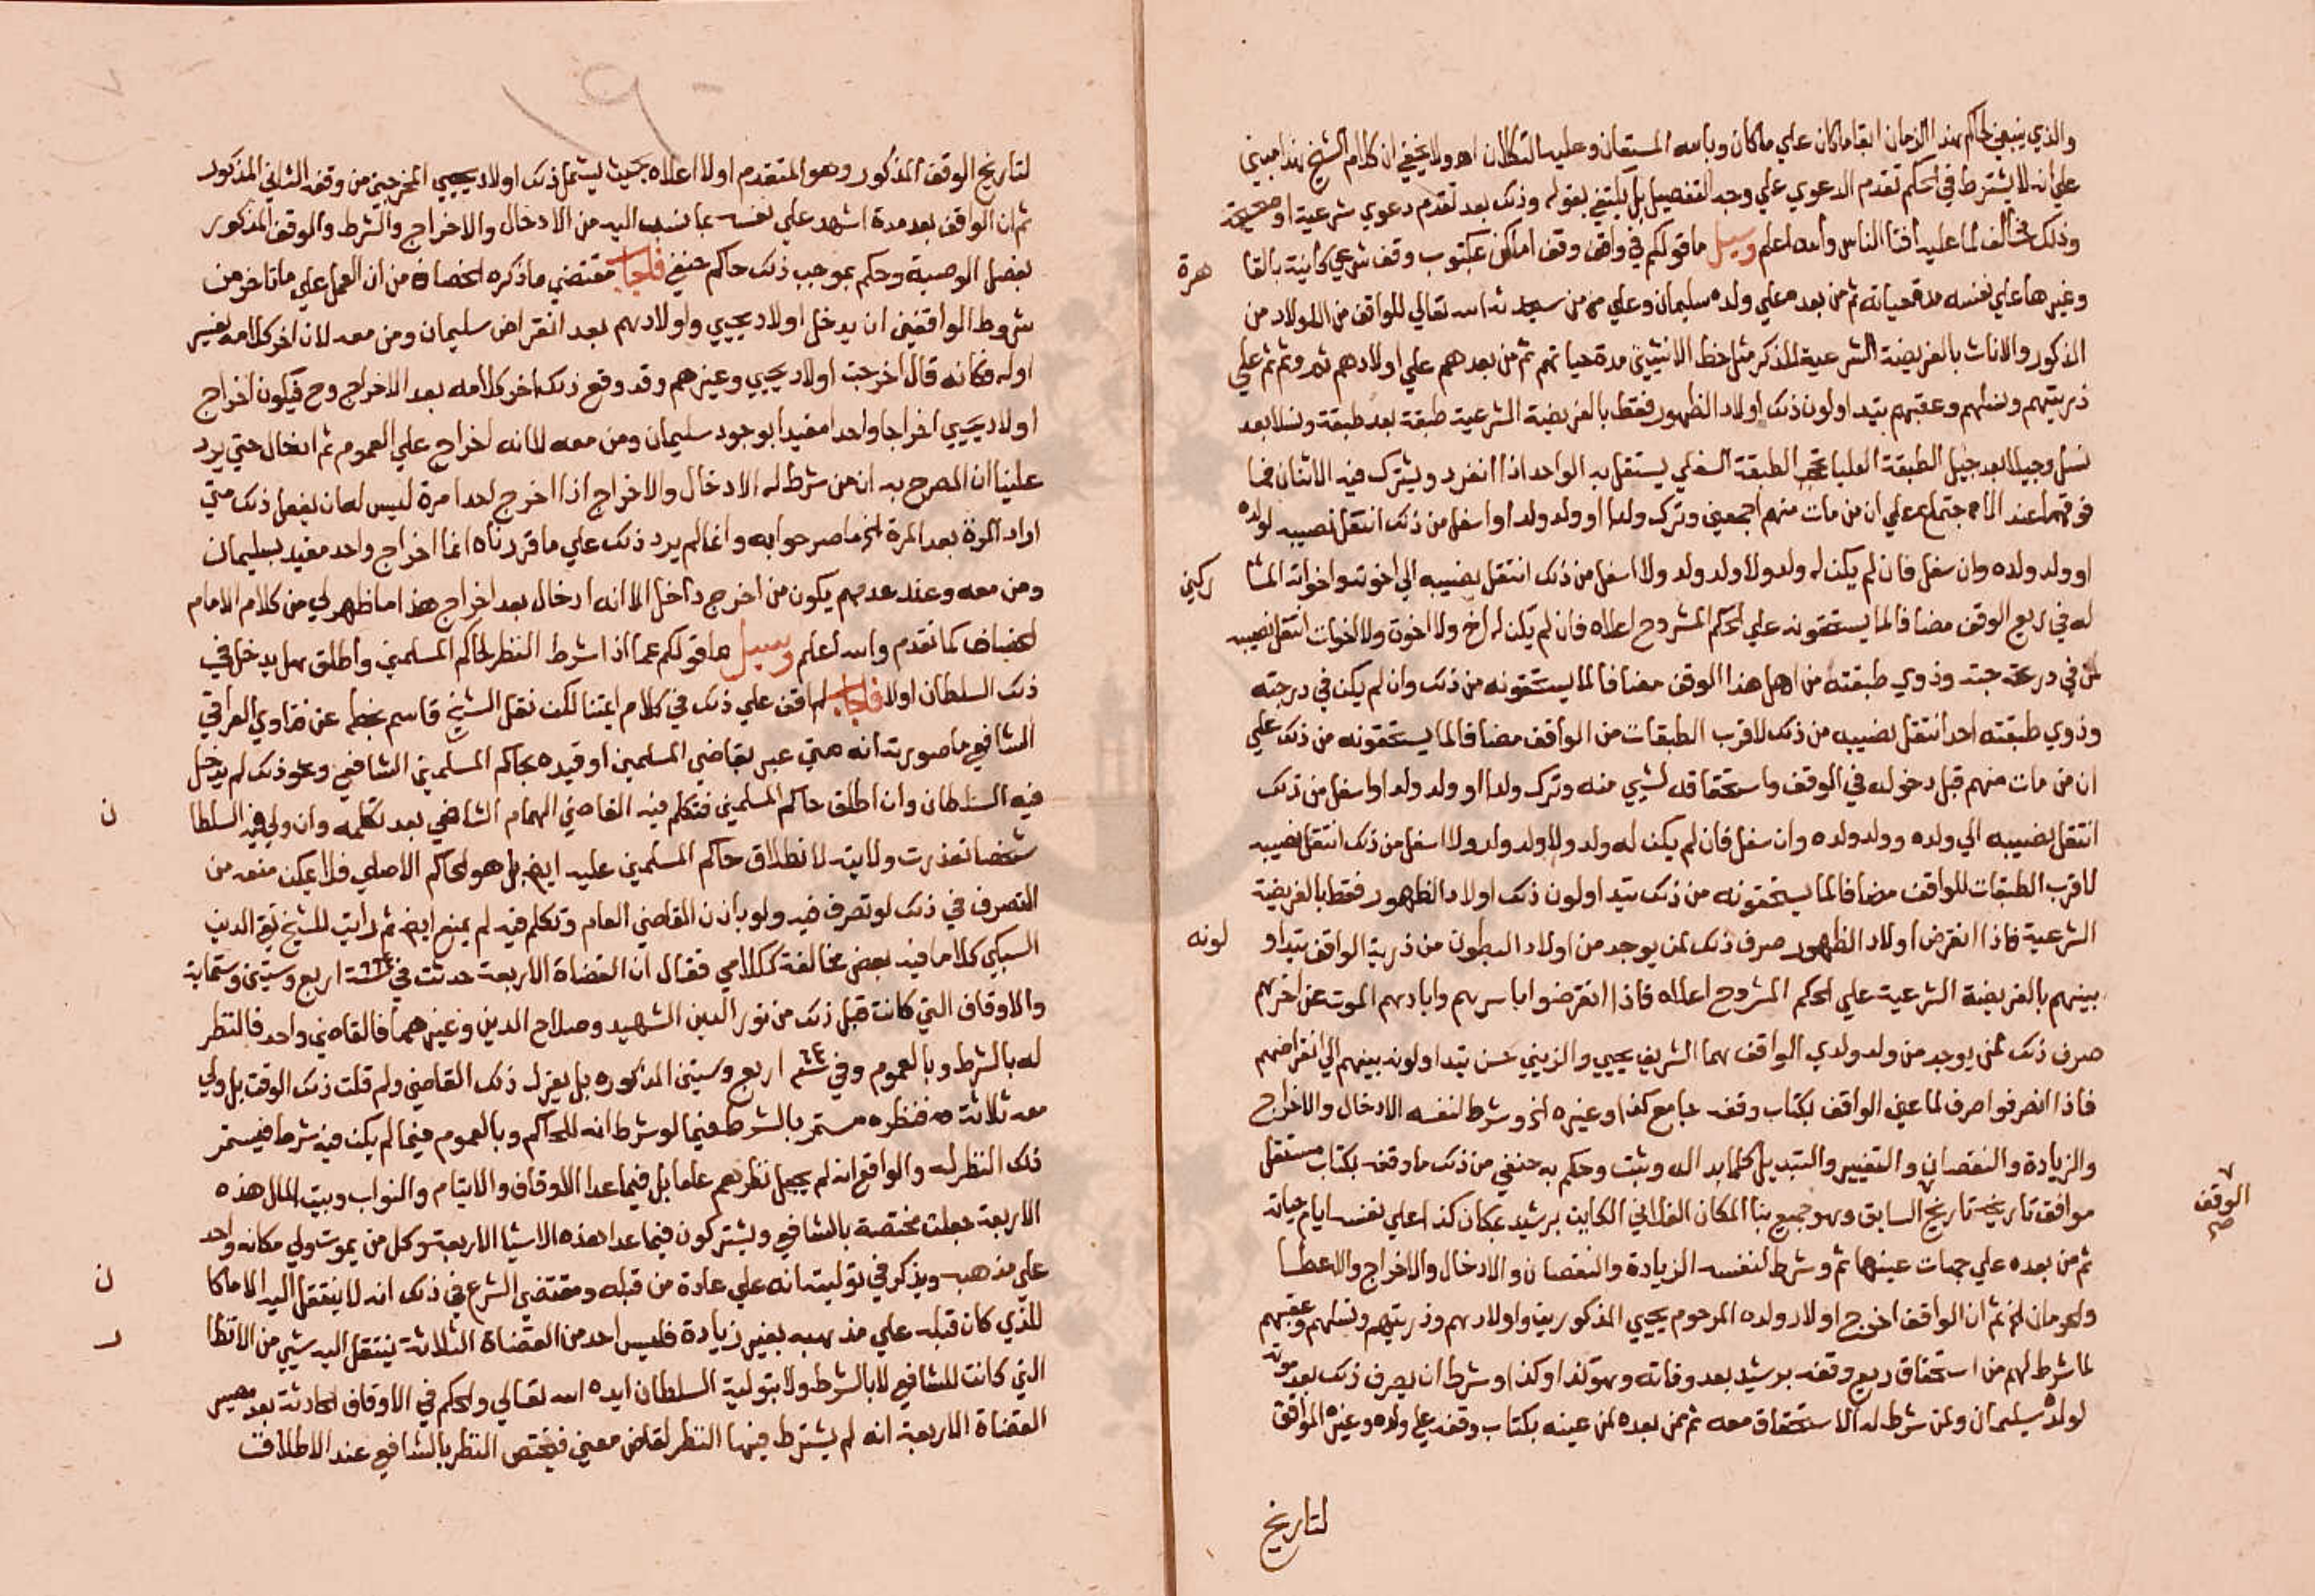 والذي ينبغي لحاكم هذا الزمان ابقا ما كان علي ما كان وبالله المستعان وعليه التكلان اهـ ولا يخفي ان كلام الشيخ هذا مبني
علي انه لا يشترط في الحكم تقدم الدعوي علي وجه التفصيل بل يكتفي بقوله وذلك بعد تقدم دعوي شرعية او صحيحة
وذلك مخالف لما عليه افتا الناس والله اعلم وسيل ما قولكم في واقف وقف اماكن بمكتوب وقف شرعي كاينة بالقا
هرة
وغيرها علي نفسه مدة حياته ثم من بعده علي ولده سليمان وعلي من سيحدثه الله تعالي للواقف من الاولاد من
الذكور والاناث بالفريضة الشرعية للذكر مثل حظ الانثيين مدة حياتهم ثم من بعدهم علي اولادهم ثم وثم ثم علي
ذريتهم ونسلهم وعقبهم يتداولون ذلك اولاد الظهور فقط بالفريضة الشرعية طبقة بعد طبقة ونسلا بعد
نسل وجيلا بعد جيل الطبقة العليا تحجب الطبقة السفلي يستقل به الواحد اذا انفرد ويشترك فيه الاثنان فما
فوقهما عند الاجتماع علي ان من مات منهم اجمعين وترك ولدا او ولد ولد او اسفل من ذلك انتقل نصيبه لولده
او ولد ولده وان سفل فان لم يكن له ولد ولا ولد ولد ولا اسفل من ذلك انتقل نصيبه الي اخوته واخواته المشا
ركين
له في ريع الوقف مضافا لما يستحقونه علي الحكم المشروح اعلاه فان لم يكن له اخ ولا اخوة ولا اخوات انتقل نصيبه
لمن في درجته وذوي طبقته من اهل هذا الوقف مضافا لما يستحقونه من ذلك وان لم يكن في درجته
وذوي طبقته احد انتقل نصيبه من ذلك لاقرب الطبقات من الواقف مضافا لما يستحقونه من ذلك علي
ان من مات منهم قبل دخوله في الوقف واستحقاقه لشيي منه وترك ولدا او ولد ولد او اسفل من ذلك
انتقل نصيبه الي ولده وولد ولده وان سفل فان لم يكن له ولد ولا ولد ولد ولا اسفل من ذلك انتقل نصيبه
لاقرب الطبقات للواقف مضافا لما يستحقونه من ذلك يتداولون ذلك اولاد الظهور فقط بالفريضة
الشرعية فاذا انقرض اولاد الظهور صرف ذلك لمن يوجد من اولاد البطون من ذرية الواقف يتداو
لونه
بينهم بالفريضة الشرعية علي الحكم المشروح اعلاه فاذا انقرضوا باسرهم وابادهم الموت عن اخرهم
صرف ذلك لمن يوجد من ولد ولدي الواقف هما الشريف يحيي والزيني حسن يتداولونه بينهم الي انقراضهم
فاذا انصرفوا صرف لما عين الواقف بكتاب وقفه بجامع كذا وغيره الخ وشرط لنفسه الادخال والاخراج
والزيادة والنقصان والتغيير والتبديل كلما بدا له وثبت وحكم به حنفي من ذلك ما وقفه بكتاب مستقل
موافق تاريخه تاريخ السابق وهو جميع بنا المكان الفلاني الكاين برشيد بمكان كذا علي نفسه ايام حياته
الوقف
صح
ثم من بعده علي جهات عينها ثم وشرط لنفسه الزيادة والنقصان والادخال والاخراج والاعطا
والحرمان الخ ثم ان الواقف اخرج اولاد ولده المرحوم يحيي المذكورين واولادهم وذريتهم ونسلهم وعقبهم
لما شرط لهم من استحقاق ريع وقفه برشيد بعد وفاته وهو كذا وكذا وشرط ان يصرف ذلك بعد موته
لولده سليمان ولمن شرط له الاستحقاق معه ثم من بعده لمن عينه بكتاب وقفه علي ولده وغيره الموافق
لتاريخ
لتاريخ الوقف المذكور وهو المتقدم اولا اعلاه بحيث يشمل ذلك اولاد يحيي المخرجين من وقفه الثاني المذكور
ثم ان الواقف بعد مدة اشهد علي نفسه بما نسب اليه من الادخال والاخراج والشرط والوقف المذكور
بفصل الوصية وحكم بموجب ذلك حاكم حنفي فاجاب مقتضي ما ذكره الخصاف من ان العمل علي ما تاخر من
شروط الواقفين ان يدخل اولاد يحيي واولادهم بعد انقراض سليمان ومن معه لان اخر كلامه يفسر
اوله فكانه قال اخرجت اولاد يحيي وغيرهم وقد وقع ذلك اخر كلامه بعد الاخراج وح فيكون اخراج
اولاد يحيي اخراجا واحدا مقيدا بوجود سليمان ومن معه لا انه اخراج علي العموم ثم ادخال حتي يرد
علينا ان المصرح به ان من شرط له الادخال والاخراج اذا اخرج احدا مرة ليس له ان يفعل ذلك متي
اراد المرة بعد المرة الخ ما صر جوابه وانما لم يرد ذلك علي ما قررناه انما اخراج واحد مقيد بسليمان
ومن معه وعند عدمهم يكون من اخرج داخل لا انه ادخال بعد اخراج هذا ما ظهر لي من كلام الامام
الخصاف كما تقدم والله اعلم وسيل ما قولكم عما اذا شرط النظر لحاكم المسلمين واطلق هل يدخل في
ذلك السلطان اولا فاجاب لم اقف علي ذلك في كلام ايمتنا لكن نقل الشيخ قاسم بخطه عن فتاوي العراقي
الشافعي ما صورته انه متي عبر بقاضي المسلمين او قيده بحاكم المسلمين الشافعي ونحو ذلك لم يدخل
فيه السلطان وان اطلق حاكم المسلمين فتكلم فيه القاضي الهمام الشافعي بعد تكلمه وان ولي فيه السلطا
ن
شخصا نفذت ولايته لانطلاق حاكم المسلمين عليه ايض بل هو الحاكم الاصلي فلا يمكن منعه من
التصرف في ذلك لو تصرف فيه ولو باذن القاضي العام وتكلم فيه لم يمنع ايض ثم رايت للشيخ تقي الدين
السبكي كلاما فيه بعض مخالفة لكلامي فقال ان القضاة الاربعة حدثت في سنة ٦٦٤ اربع وستين وستماية
والاوقاف التي كانت قبل ذلك من نور الدين الشهيد وصلاح الدين وغيرهما فالقاضي واحد فالنظر
له بالشرط وبالعموم وفي سنة ٦٤ اربع وستين المذكوره بل يعزل ذلك القاضي ولم قلت ذلك الوقت بل ولي
معه ثلاثة فنظره مستمر بالشرط فيما لو شرط انه للحاكم وبالعموم فيما لم يكن فيه شرط فيستمر
ذلك النظر له والواقع انه لم يجعل نظرهم عاما بل فيما عدا الاوقاف والايتام والنواب وبيت المال هذه
الاربعة جعلت مختصة بالشافعي ويشتركون فيما عدا هذه الاشيا الاربعة وكل من يموت ولي مكانه واحد
علي مذهبه ويذكر في توليته انه علي عادة من قبله ومقتضي الشرع في ذلك انه لا ينتقل اليه الا ما كا
ن
للذي كان قبله علي مذهبه بغير زيادة فليس احد من القضاة الثلاثة ينتقل اليه شيي من الانظا
ر
التي كانت للشافعي لا بالشرط ولا بتولية السلطان ايده الله تعالي والحكم في الاوقاف الحادثة بعد مصير
القضاة الاربعة انه لم يشترط فيها النظر لقاض معين فيختص النظر بالشافعي عند الاطلاق